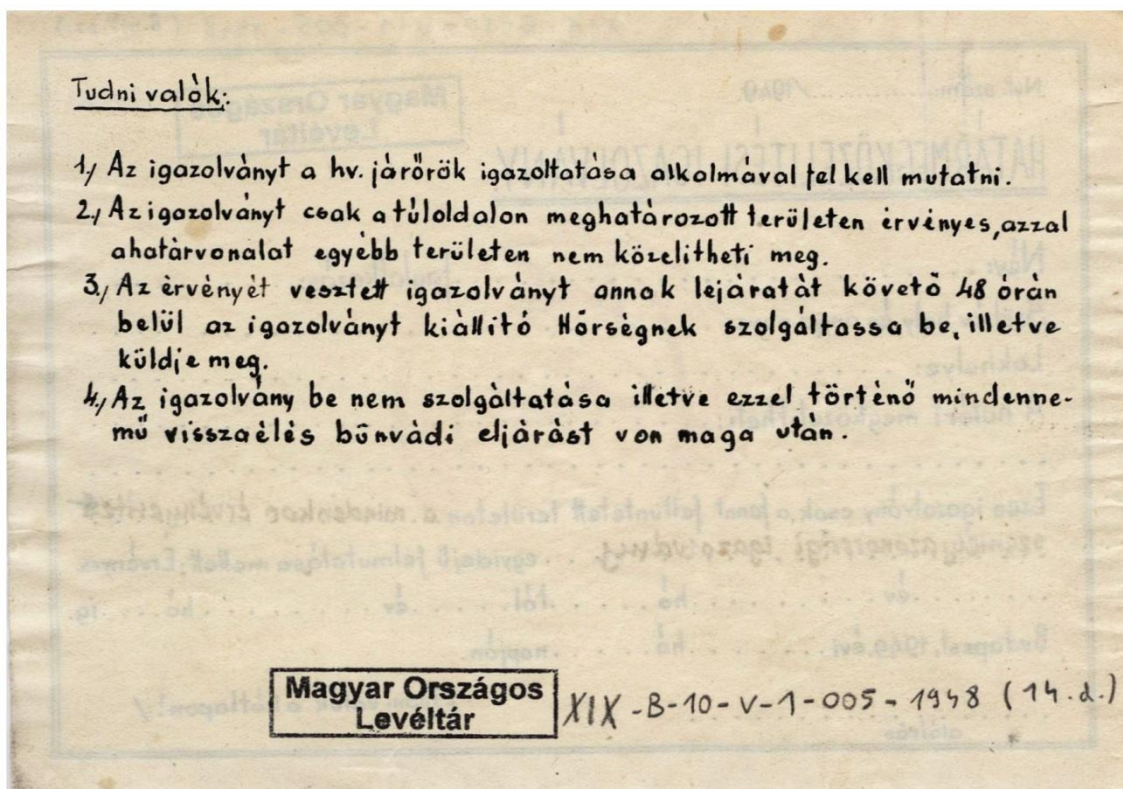 Tudni valók:
1./ Az igazolványt a hv. járőrök igazoltatása alkalmával fel kell mutatni.
2./ Az igazolványt csak a túloldalon meghatározott területen érvényes, azzal
a határvonalat egyébb területen nem közelitheti meg.
3./ Az érvényét vesztett igazolványt annak lejáratát követő 48 órán
belül az igazolványt kiállitó Hőrségnek szolgáltassa be, illetve
küldje meg.
4./ Az igazolvány be nem szolgáltatása illetve ezzel történő mindenne-
mű visszaélés bűnvádi eljárást von maga után.
Magyar Országos
Levéltár
XIX-B-10-V-1-005-1948 (14.d.)